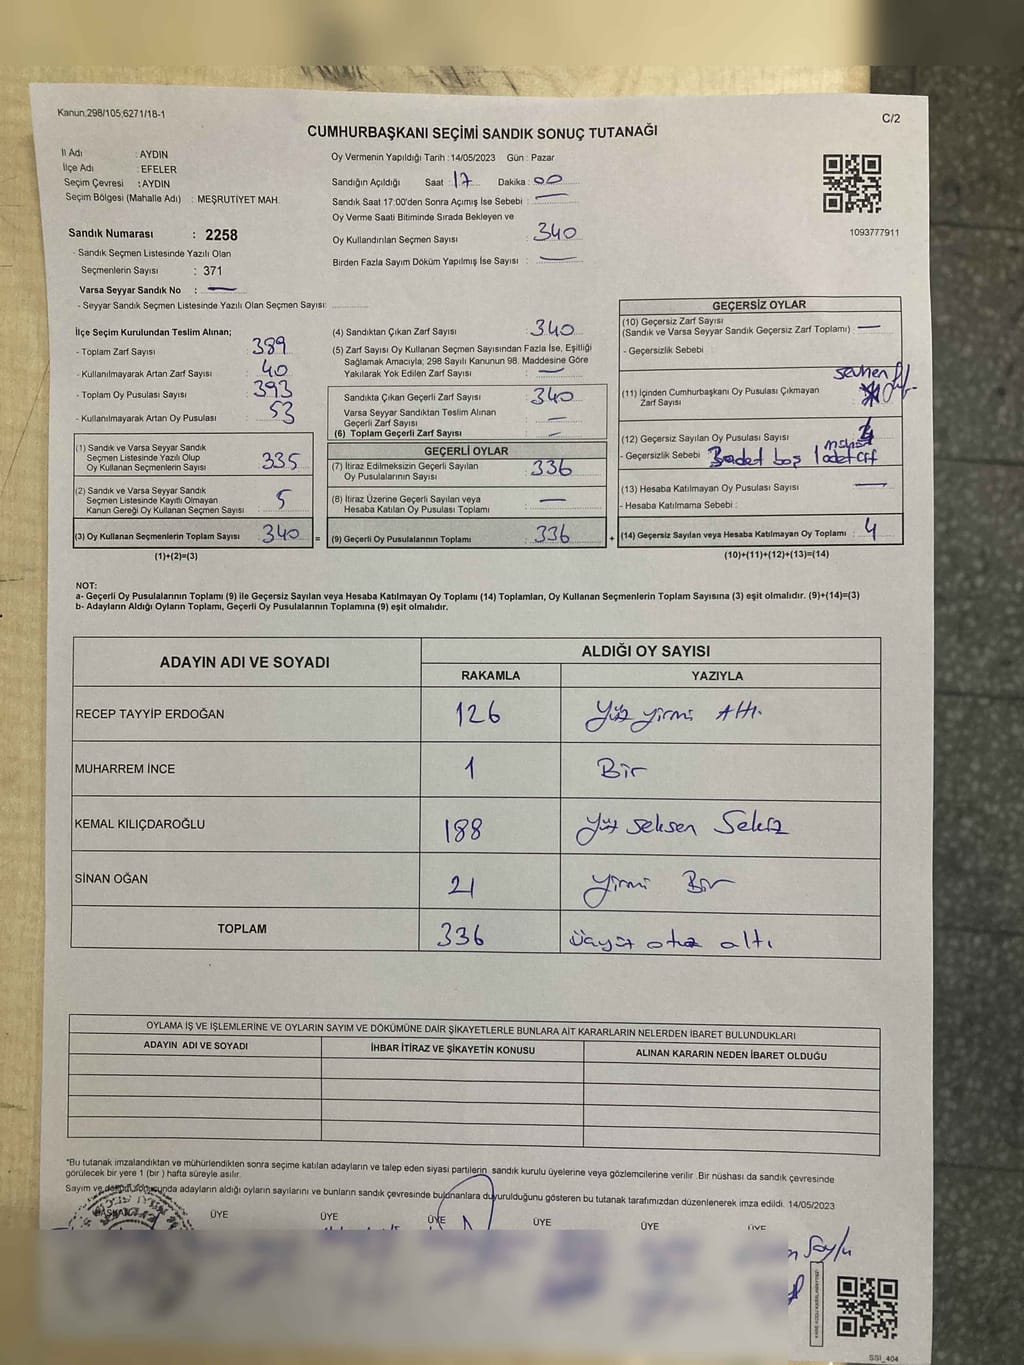 Kanun;298/105;6271/18-1
C/2
CUMHURBAŞKANI SEÇİMİ SANDIK SONUÇ TUTANAĞI
İl Adı : AYDIN
İlçe Adı : EFELER
Seçim Çevresi : AYDIN
Seçim Bölgesi (Mahalle Adı) : MEŞRUTİYET MAH.
Sandık Numarası : 2258
- Sandık Seçmen Listesinde Yazılı Olan
Seçmenlerin Sayısı : 371
Varsa Seyyar Sandık No : —
- Seyyar Sandık Seçmen Listesinde Yazılı Olan Seçmen Sayısı:
Oy Vermenin Yapıldığı Tarih : 14/05/2023 Gün : Pazar
Sandığın Açıldığı Saat 17 Dakika : 00
Sandık Saat 17:00'den Sonra Açımış İse Sebebi : —
Oy Verme Saati Bitiminde Sırada Bekleyen ve
Oy Kullandırılan Seçmen Sayısı : 340
Birden Fazla Sayım Döküm Yapılmış İse Sayısı : —
1093777911
İlçe Seçim Kurulundan Teslim Alınan;
- Toplam Zarf Sayısı : 389
- Kullanılmayarak Artan Zarf Sayısı : 40
- Toplam Oy Pusulası Sayısı : 393
- Kullanılmayarak Artan Oy Pusulası : 53
(1) Sandık ve Varsa Seyyar Sandık
Seçmen Listesinde Yazılı Olup
Oy Kullanan Seçmenlerin Sayısı : 335
(2) Sandık ve Varsa Seyyar Sandık
Seçmen Listesinde Kayıtlı Olmayan
Kanun Gereği Oy Kullanan Seçmen Sayısı : 5
(3) Oy Kullanan Seçmenlerin Toplam Sayısı : 340 =
(1)+(2)=(3)
(4) Sandıktan Çıkan Zarf Sayısı : 340
(5) Zarf Sayısı Oy Kullanan Seçmen Sayısından Fazla İse, Eşitliği
Sağlamak Amacıyla; 298 Sayılı Kanunun 98. Maddesine Göre
Yakılarak Yok Edilen Zarf Sayısı : —
Sandıkta Çıkan Geçerli Zarf Sayısı : 340
Varsa Seyyar Sandıktan Teslim Alınan
Geçerli Zarf Sayısı : —
(6) Toplam Geçerli Zarf Sayısı : —
GEÇERLİ OYLAR
(7) İtiraz Edilmeksizin Geçerli Sayılan
Oy Pusulalarının Sayısı : 336
(8) İtiraz Üzerine Geçerli Sayılan veya
Hesaba Katılan Oy Pusulası Toplamı : —
(9) Geçerli Oy Pusulalarının Toplamı : 336 +
GEÇERSİZ OYLAR
(10) Geçersiz Zarf Sayısı
(Sandık ve Varsa Seyyar Sandık Geçersiz Zarf Toplamı) : —
- Geçersizlik Sebebi :
(11) İçinden Cumhurbaşkanı Oy Pusulası Çıkmayan
Zarf Sayısı :
(12) Geçersiz Sayılan Oy Pusulası Sayısı : 4
- Geçersizlik Sebebi : 3 adet boş 1 adet
(13) Hesaba Katılmayan Oy Pusulası Sayısı : —
- Hesaba Katılmama Sebebi :
(14) Geçersiz Sayılan veya Hesaba Katılmayan Oy Toplamı : 4
(10)+(11)+(12)+(13)=(14)
NOT:
a- Geçerli Oy Pusulalarının Toplamı (9) ile Geçersiz Sayılan veya Hesaba Katılmayan Oy Toplamı (14) Toplamları, Oy Kullanan Seçmenlerin Toplam Sayısına (3) eşit olmalıdır. (9)+(14)=(3)
b- Adayların Aldığı Oyların Toplamı, Geçerli Oy Pusulalarının Toplamına (9) eşit olmalıdır.
ADAYIN ADI VE SOYADI ALDIĞI OY SAYISI
RAKAMLA YAZIYLA
RECEP TAYYİP ERDOĞAN 126 Yüz yirmi Altı.
MUHARREM İNCE 1 Bir
KEMAL KILIÇDAROĞLU 188 Yüz Seksen Sekiz
SİNAN OĞAN 21 Yirmi Bir
TOPLAM 336 üçyüz otuz altı.
OYLAMA İŞ VE İŞLEMLERİNE VE OYLARIN SAYIM VE DÖKÜMÜNE DAİR ŞİKAYETLERLE BUNLARA AİT KARARLARIN NELERDEN İBARET BULUNDUKLARI
ADAYIN ADI VE SOYADI İHBAR İTİRAZ VE ŞİKAYETİN KONUSU ALINAN KARARIN NEDEN İBARET OLDUĞU
*Bu tutanak imzalandıktan ve mühürlendikten sonra seçime katılan adayların ve talep eden siyasi partilerin sandık kurulu üyelerine veya gözlemcilerine verilir. Bir nüshası da sandık çevresinde
görülecek bir yere 1 (bir ) hafta süreyle asılır.
Sayım ve dökümü sonunda adayların aldığı oyların sayılarını ve bunların sandık çevresinde bulunanlara duyurulduğunu gösteren bu tutanak tarafımızdan düzenlenerek imza edildi. 14/05/2023
BAŞKAN ÜYE ÜYE ÜYE ÜYE ÜYE ÜYE
SSI_404